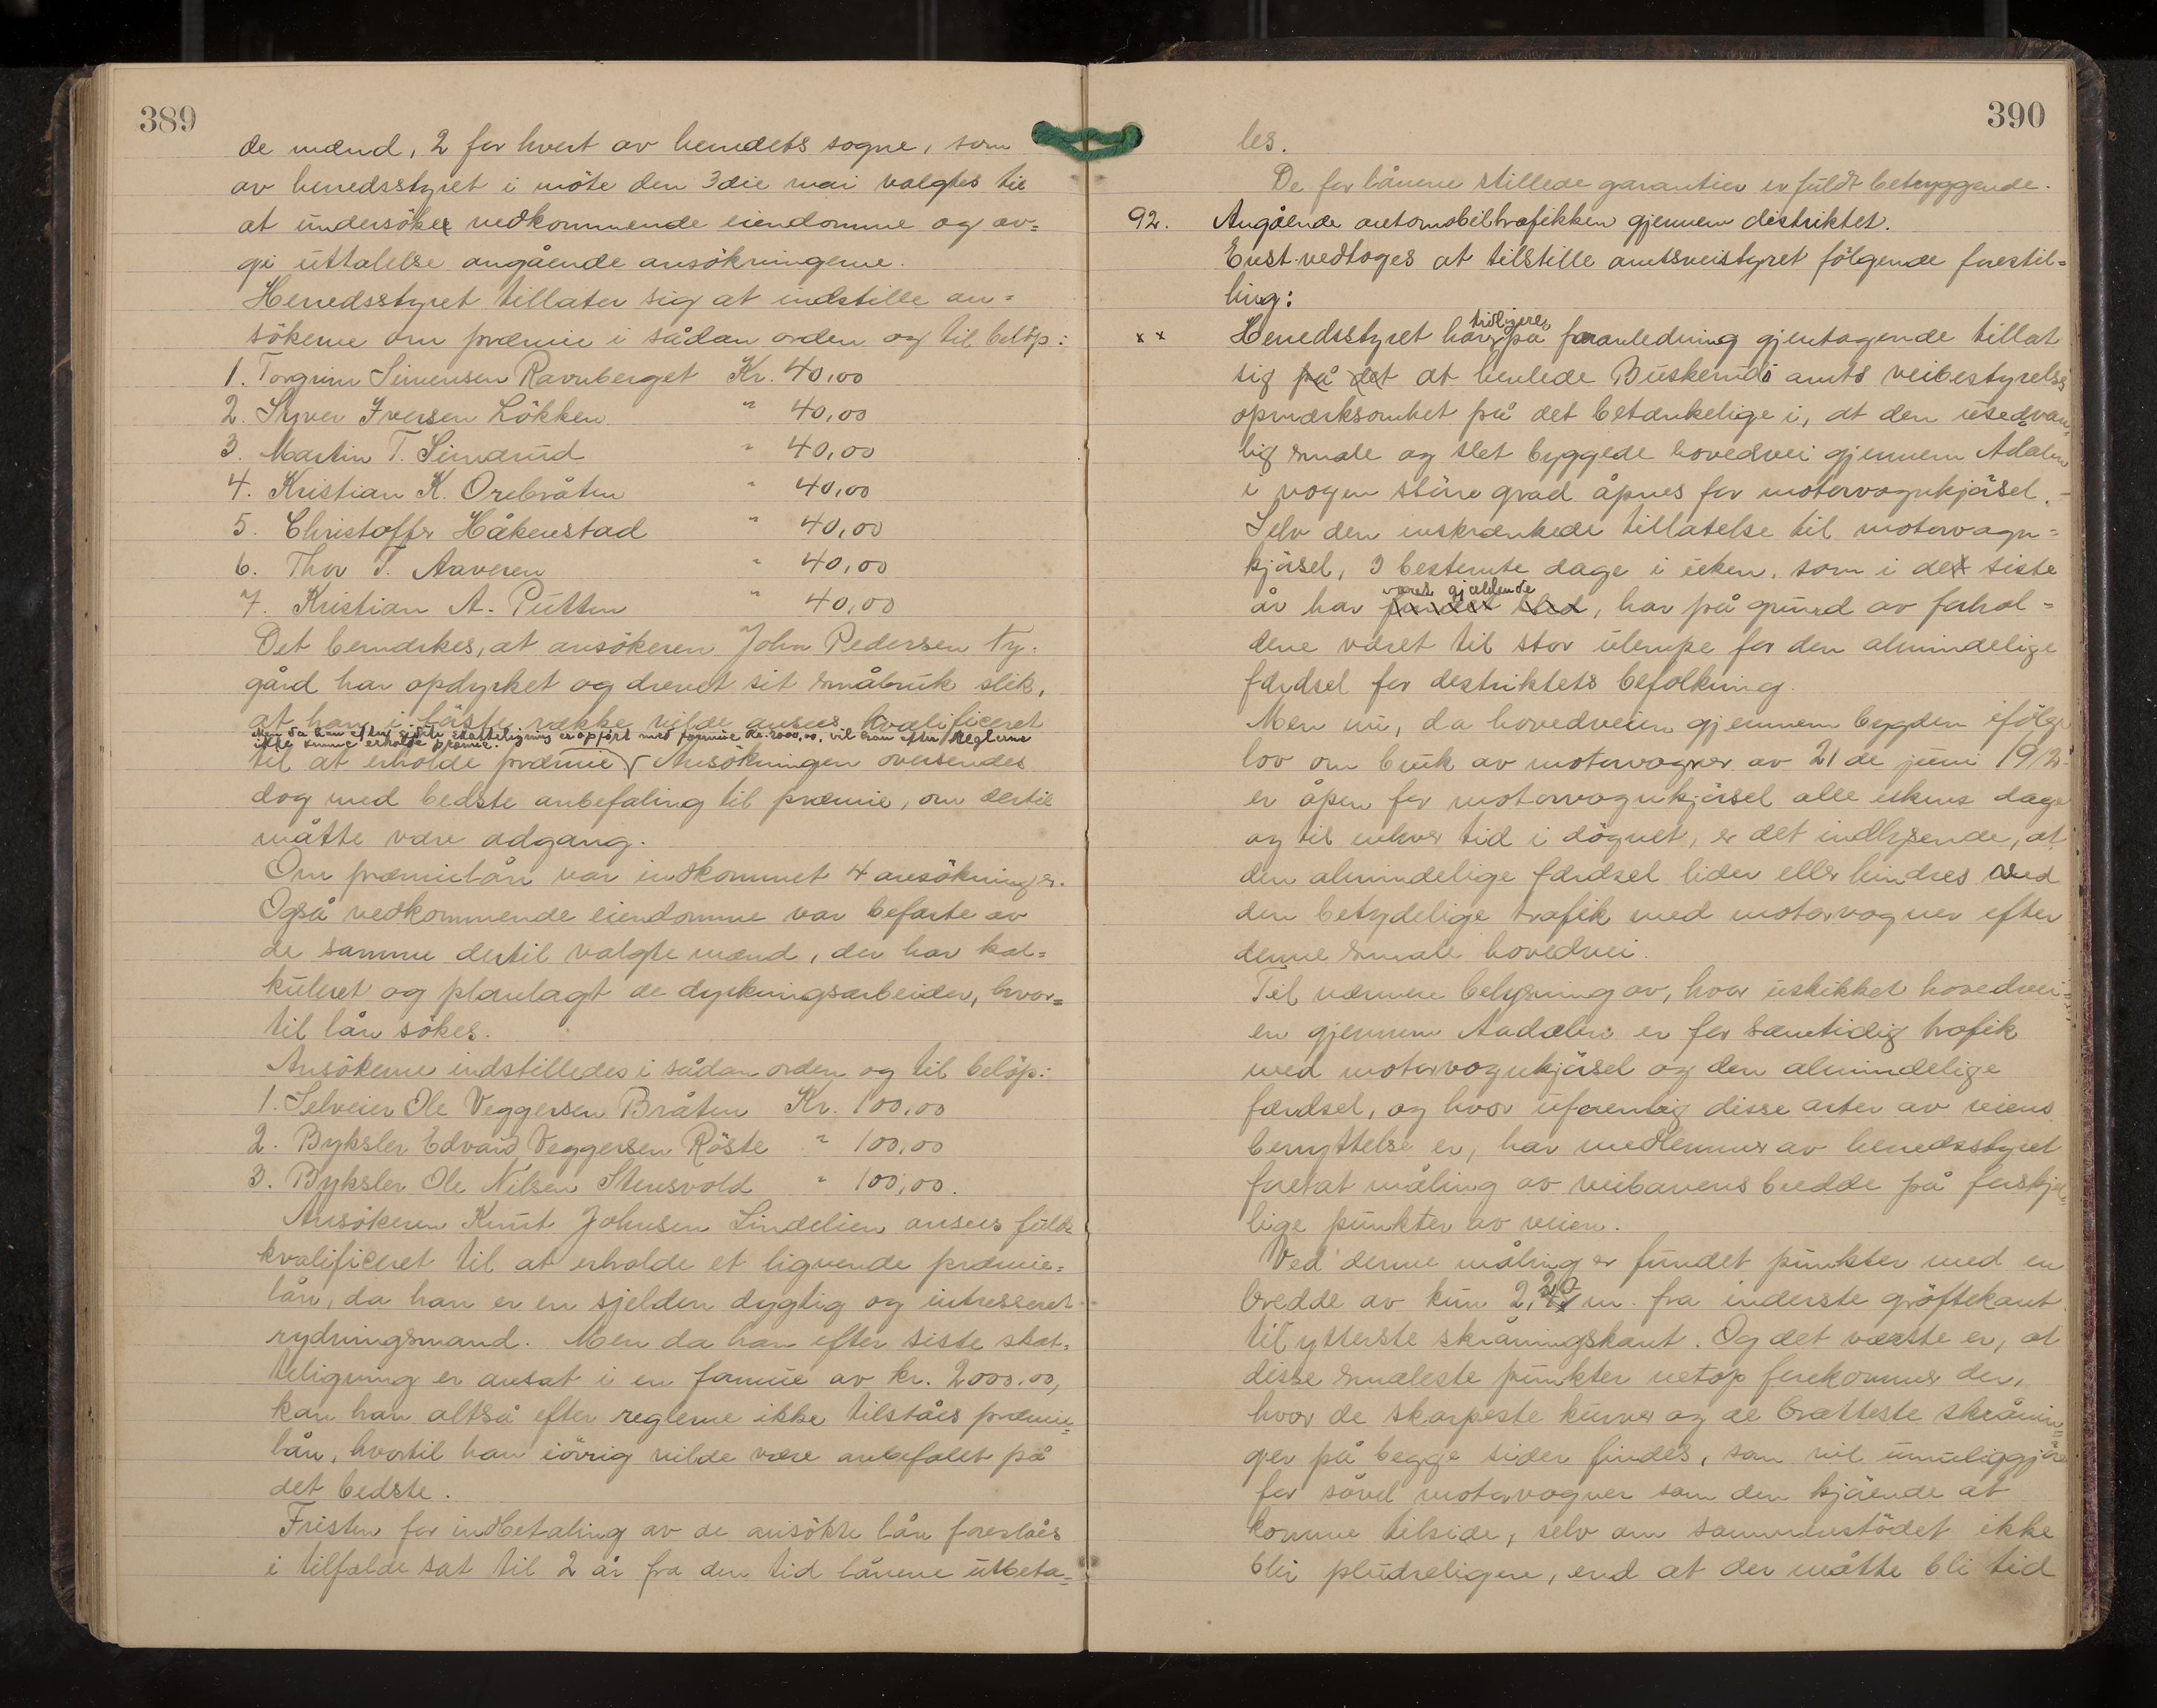 389
de mænd, 2 for hvert av herredets sogne, som
av herredsstyret i möte den 3die mai valgtes til
at undersöke vedkommende eiendomme og av=
gi uttalelse angående ansökningerne.
Herredsstyret tillater sig at indstille an=
sökerne om præmie i sådan orden og til belöp:
1. Torgrim Simensen Ravnberget Kr. 40,00
2. Syver Iversen Lökken " 40,00
3. Martin T. Simarud " 40,00
4. Kristian K. Orebråten " 40,00
5. Christoffer Håkenstad " 40,00
6. Thor T. Aaveren " 40,00
7. Kristian A. Putten " 40,00
Det bemærkes, at ansökeren John Pedersen Ny-
gård har opdyrket og drevet sit småbruk slik,
at han i første række vilde ansees kvalificeret
Men da han efter sidste skatteligning er opført med formue kr. 2000,00, vil han efter reglerne
ikke kunne erholde præmie.
til at erholde præmie Ansökningen oversendes
dog med bedste anbefaling til præmie, om dertil
måtte være adgang.
Om præmielån var indkommet 4 ansökninger.
Også vedkommende eiendomme var befarte av
de samme dertil valgte mænd, der har kal=
kuleret og planlagt de dyrkningsarbeider, hvor=
til lån sökes.
Ansökerne indstilledes i sådan orden og til belöp:
1. Selveier Ole Veggersen Bråten Kr. 100,00
2. Byksler Edvard Veggersen Röste " 100,00
3. Byksler Ole Nilsen Stensvold " 100,00.
Ansökeren Knut Johnsen Lindelien ansees fuldt
kvalificeret til at erholde et lignende præmie=
lån, da han er en sjelden dygtig og interesseret
rydningsmand. Men da han efter siste skat=
teligning er ansat i en formue av kr. 2000.00,
kan han altså efter reglerne ikke tilståes præmie=
lån, hvortil han iövrig vilde være anbefalet på
det bedste.
Fristen for indbetaling av de ansökte lån foreslåes
i tilfælde sat til 2 år fra den tid lånene utbeta=
390
les.
De for lånene stillede garantier er fuldt betryggende.
92. Angående automobiltrafikken gjennem distriktet.
Enst. vedtoges at tilstille amtsveistyret fölgende forestil=
ling:
x x Herredsstyret har tidligere på foranledning gjentagende tillat
sig på det at henlede Buskeruds amts veibestyrelses
opmærksomhet på det betænkelige i, at den usedvan=
lig smale og slet byggede hovedvei gjennem Ådalen
i nogen större grad åpnes for motorvognkjörsel. -
Selv den inskrænkede tillatelse til motorvogn=
kjörsel, 3 bestemte dage i uken, som i det siste
år har været gjældende, har på grund av forhol=
dene været til stor ulempe for den almindelige
færdsel for destriktets befolkning.
Men nu, da hovedveien gjennem bygden ifölge
lov om bruk av motorvogner av 21de juni 1912
er åpen for motorvognkjörsel alle ukens dage
og til enhver tid i dögnet, er det indlysende, at
den almindelige færdsel lider eller hindres ved
den betydelige trafik med motorvogner efter
denne smale hovedvei.
Til nærmere belysning av, hvor uskikket hovedvei=
en gjennem Aadalen er for samtidig trafik
med motorvognkjörsel og den almindelige
færdsel, og hvor uforenlig disse arter av veiens
benyttelse er, har medlemmer av herredsstyret
foretat måling av veibanens bredde på forskjel=
lige punkter av veien.
Ved denne måling er fundet punkter med en
bredde av kun 2,20 m. fra inderste gröftekant
til ytterste skråningskant. Og det værste er, at
disse smaleste punkter netop forekommer der,
hvor de skarpeste kurver og de bratteste skrånin=
ger på begge sider findes, som vil umuliggjöre
for såvel motorvogner som den kjörende at
komme tilside, selv om sammenstödet ikke
blir pludseligere, end at der måtte bli tid